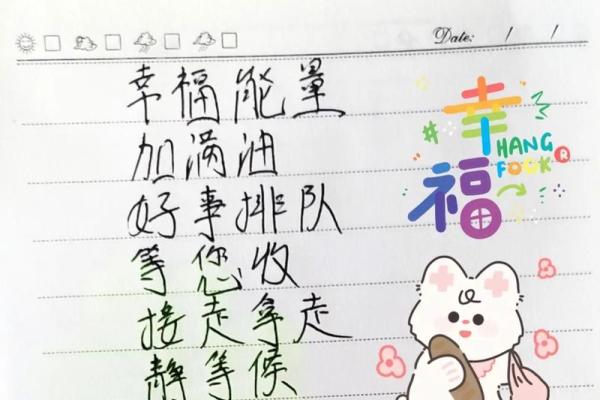 Date: / /
幸福能量
加满油
好事排队
等您收
接走拿走
静等候
幸福
HANG
FOOK
R